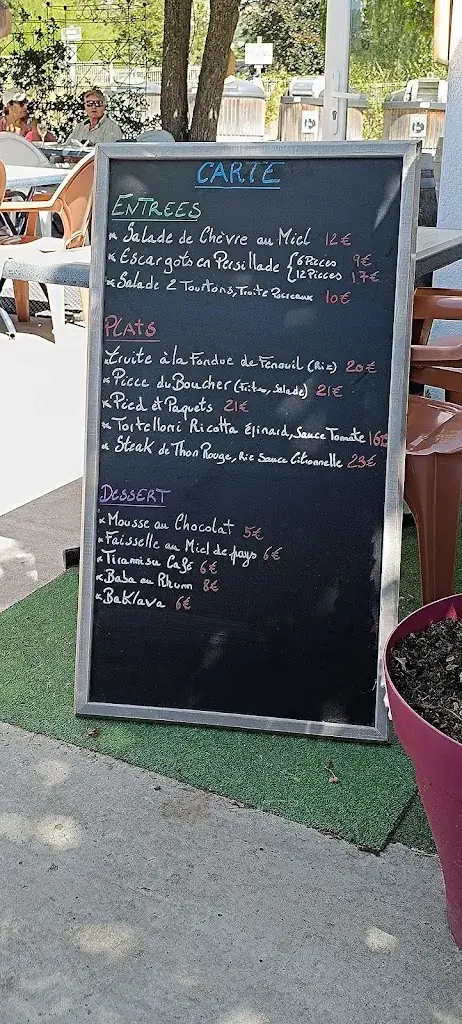 CARTE
ENTREES
* Salade de Chèvre au Miel 12€
* Escargots en Persillade { 6 Pieces 9€
12 Pieces 17€
* Salade 2 Tourtons, Truite 10€
PLATS
Truite à la Fondue de Fenouil (Riz) 20€
* Piece du Boucher (Frites, Salade) 21€
* Pied et Paquets 21€
* Tortelloni Ricotta épinard, Sauce Tomate 16€
* Steak de Thon Rouge, Riz Sauce Citronnelle 23€
DESSERT
* Mousse au Chocolat 5€
* Faisselle au Miel de pays 6€
* Tiramisu Café 6€
* Baba au Rhum 8€
* Baklava 6€